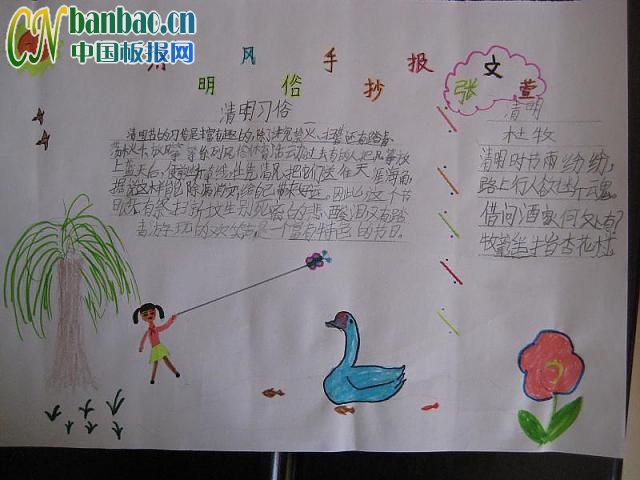 CN banbao.cn
中国板报网
清 风 手 报
明 俗 抄
张文萱
清明习俗
清明节的习俗是丰富有趣的,除了讲究禁火、扫墓,还有踏青
上蓝天后,便剪断牵线,凭清风把它们送往天涯海角,
据说这样能除病消灾,给自己带来好运。因此,这个节
日既有祭扫新坟生别死离的悲酸泪,又有踏
青游玩的欢笑声,是一个富有特色的节日。
清明
杜牧
清明时节雨纷纷,
路上行人欲断魂。
借问酒家何处有?
牧童 杏花村